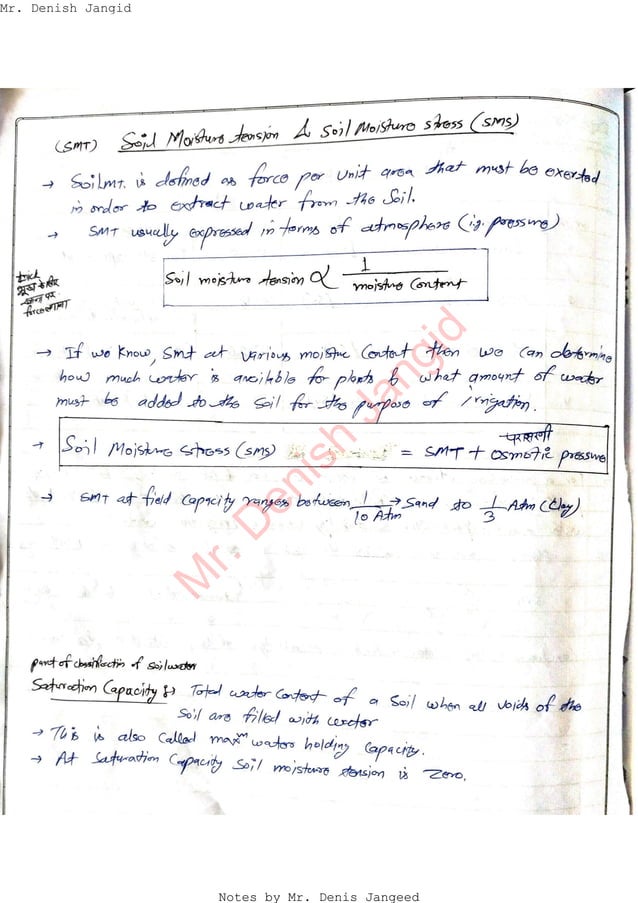 Mr. Denish Jangid
(SMT) Soil Moisture tension & Soil Moisture stress (SMS)
→ Soil MT. is defined as force per unit area that must be exerted
in order to extract water from the Soil.
→ SMT usually expressed in terms of atmosphere (ig. pressure)
Soil moisture tension ∝ 1 / moisture Content
trick
→ If we know, Smt at various moistuc Content then we can determine
how much water is available for plants & what amount of water
must be added to the Soil for the purpose of Irrigation.
परासरणी
→ Soil Moisture Stress (SMS) = SMT + osmotic pressure
→ SMT at field Capacity ranges between 1/10 Atm → Sand to 1/3 Atm (Clay)
Mr. Denish Jangid
part of classification of soil water
Saturation Capacity :→ Total water Content of a Soil when all voids of the
Soil are filled with water
→ This is also Called maxm water holding Capacity.
→ At Saturation Capacity Soil moisture tension is Zero.
Notes by Mr. Denis Jangeed